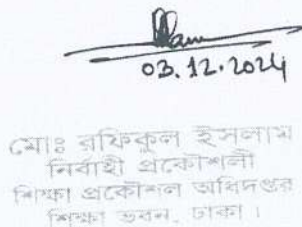 03.12.2024
মোঃ রফিকুল ইসলাম
নির্বাহী প্রকৌশলী
শিক্ষা প্রকৌশল অধিদপ্তর
শিক্ষা ভবন, ঢাকা।